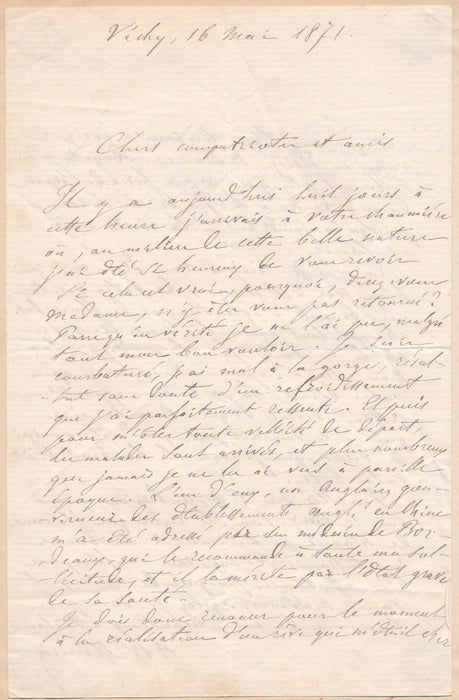 Vichy, 16 Mai 1871.
Chers compatriotes et amis
Il y a aujourd'hui huit jours à
cette heure j'arrivais à votre chaumière
où, au milieu de cette belle nature
j'ai été si heureux de vous revoir
Si cela est vrai, pourquoi, direz-vous
madame, n'y êtes vous pas retourné?
Parce qu'en vérité je ne l'ai pu, malgré
tout mon bon vouloir. Je suis
courbaturé, j'ai mal à la gorge, résul-
tat sans doute d'un refroidissement
que j'ai parfaitement ressenti. Et puis
pour m'ôter toute velléité de départ
les malades sont arrivés, et plus nombreux
que jamais je ne les ai vus à pareille
époque. L'un d'eux, un Anglais, gou-
verneur des établissements angl. en Chine
m'a été adressé par son médecin de Bor-
deaux, qui le recommande à toute ma sol-
licitude, et il la mérite par l'état grave
de sa santé.
Je dois donc renoncer pour le moment
à la réalisation d'un rêve qui m'était cher